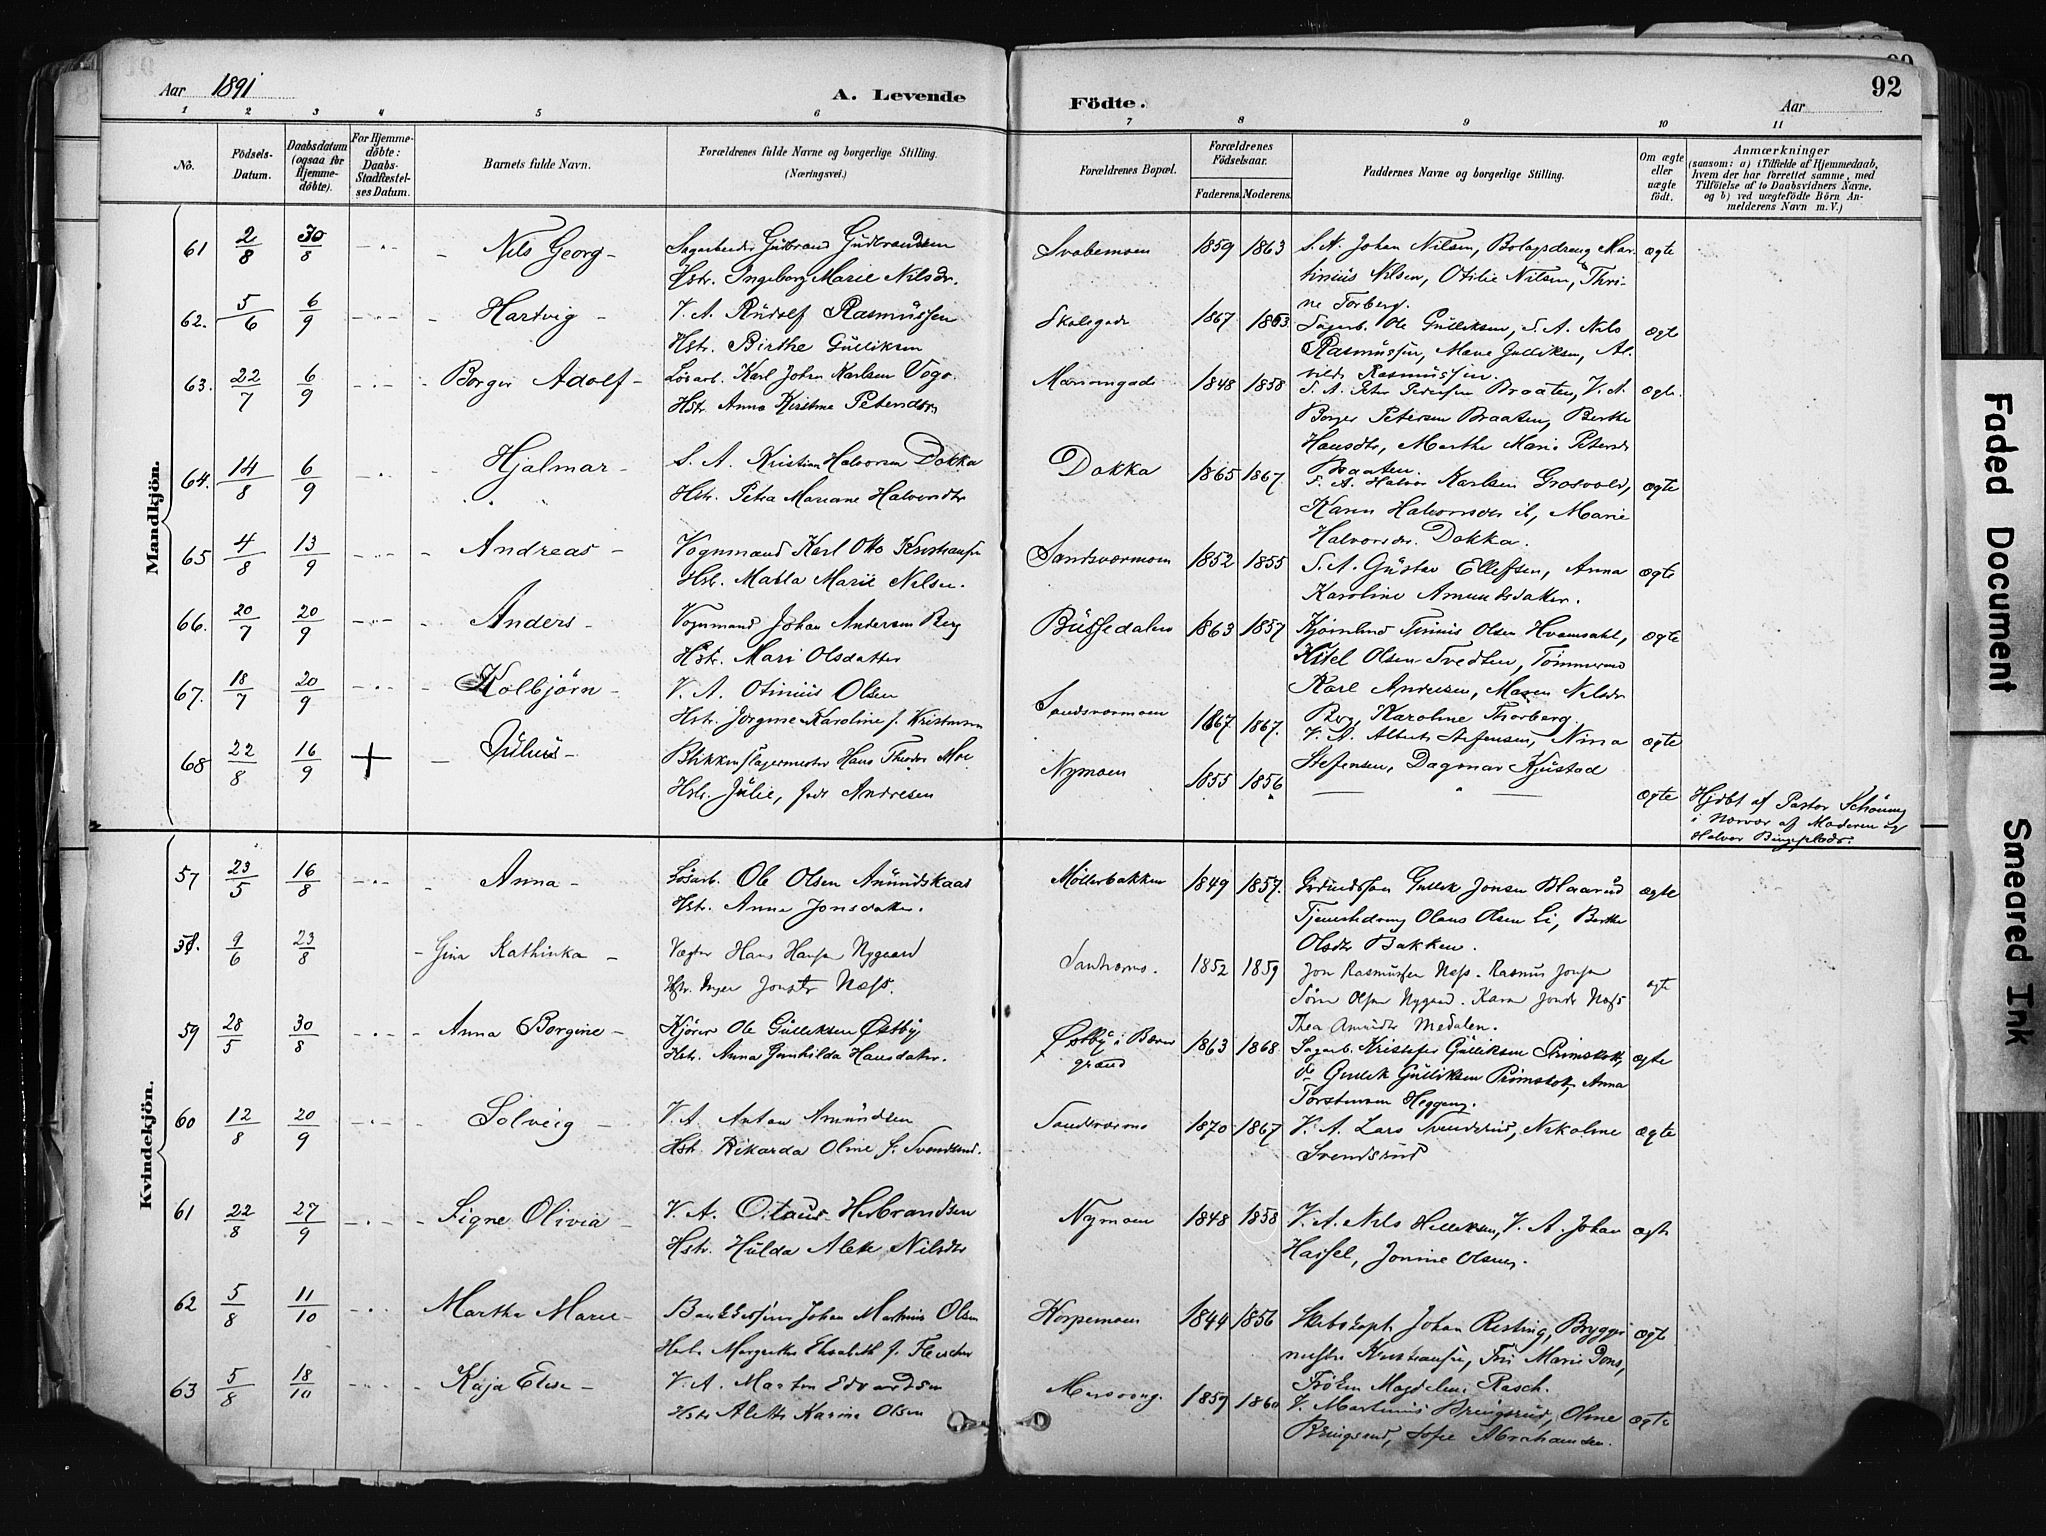 Aar 1891
A. Levende
Födte.
92
Aar
1 2 3 4 5 6 7 8 9 10 11
No.
Födsels-Datum.
Daabsdatum (ogsaa for Hjemme-döbte).
For Hjemme-döbte: Daabs-Stadfæstel-ses Datum.
Barnets fulde Navn.
Forældrenes fulde Navne og borgerlige Stilling.
(Næringsvei.)
Forældrenes Bopæl.
Forældrenes Födselsaar.
Faderens. Moderens.
Faddernes Navne og borgerlige Stilling.
Om ægte eller uægte födt.
Anmærkninger
(saasom: a) i Tilfælde af Hjemmedaab,
hvem der har forrettet samme, med
Tilföielse af to Daabsvidners Navne,
og b) ved uægtefödte Börn An-
melderens Navn m. V.)
Mandkjön.
61 2/8 30/8 Nils Georg Gulbrand Gudbrandsen Svabemoen 1859 1863 S. A. Johan Nilsen, Bolagsdreng Mar- ægte
Hstr. Ingeborg Marie Nilsdr. tinius Nilsen, Otilie Nilsen, Thri-
ne Torberg.
62. 5/6 6/9 Hartvig V. A. Rudolf Rasmussen Skolegade 1867 1863 Sagarb. Ole Gulliksen, S. A. Nils ægte
Hstr. Birthe Gulliksen Rasmussen, Marie Gulliksen, Al-
vilde Rasmussen.
63. 22/7 6/9 Borger Adolf Løsarb. Karl Johan Karlsen Vego 1848 1858 S. A. Peter Pedersen Braaten, V. A. ægte.
Hstr. Anna Kirstine Petersdtr Borger Petersen Braaten, Berthe
Hansdtr, Marthe Marie Petersdr
Braaten.
64. 14/8 6/9 Hjalmar S. A. Kristian Halvorsen Dokka Dokka 1865 1867 S. A. Halvor Karlsen Grosvold, ægte
Hstr. Petra Mariane Halvorsdtr Karen Halvorsdtr ib, Marie
Halvorsdr. Dokka.
65 4/8 13/9 Andreas Vognmand Karl Otto Kristiansen Sandsværmoen 1852 1855 S. A. Gustav Ellefsen, Anna ægte
Hstr. Matla Marie Nilsen. Karoline Amundsdatter.
66. 20/7 20/9 Anders Vognmand Johan Andersen Berg Bussedalen 1863 1857 Tinius Olsen Hvamsahl, ægte
Hstr. Mari Olsdatter Kitel Olsen Tvedten, Tömmermd
Karl Andersen, Maren Nilsdr
Berg, Karoline Thorberg.
67. 18/7 20/9 Kolbjörn V. A. Otinius Olsen Sandsværmoen 1867 1867. V. A. Albert Stefensen, Nina ægte
Hstr. Jörgine Karoline f. Kristensen Stefensen, Dagmar Kjustad
68 22/8 16/9 + Julius Blikkenslagermester Hans Theodor Moe Nymoen 1855 1856 ægte Hjdbt af Pastor Schöning
Hstr. Julie, født Andresen i Nærvær af Moderen og
Halvor Bingeplads.
Kvindekjön.
57 23/5 16/8 Anna Løsarb. Ole Olsen Amundskaas Møllerbakken 1849 1857. Gullik Jonsen Blaarud ægte
Hstr. Anne Jonsdatter. Tjenestedreng Olaus Olsen Li, Berthe
Olsdtr Bakken.
58. 9/6 23/8 Gina Kathinka Vægter Hans Hansen Nygaard 1852 1859 Jon Rasmussen Næss. Rasmus Jonsen ægte
Hstr. Inger Jonsdtr Næss. Søren Olsen Nygaard. Karen Jonsdr Næss
Thea Amundsdtr Medalen.
59 28/5 30/8 Anna Borgine Kjører Ole Gulliksen Østby Østby i Bæver 1863 1868 Sagarb. Kristofer Gulliksen Primstok, ægte
Hstr. Anna Gunhilda Hansdatter. grænd Gullik Gulliksen Primstok, Anna
Torstensen Heggeng.
60 12/8 20/9 Solveig V. A. Anton Amundsen Sandsværmo 1870 1867 V. A. Lars Svendsrud, Nikoline ægte
Hstr. Rikarda Oline f. Svendsrud. Svendsrud
61 22/8 27/9 Signe Olivia V. A. Otaus Helbrandsen Nymoen 1848 1858 V. A. Nils Helliksen, V. A. Johan ægte
Hstr. Hulda Alette Nilsdtr Hassel, Jonine Olsen.
62 5/8 11/10 Martha Marie Johan Martinus Olsen Korpemoen 1844 1856 Johan Resting, Brygge ægte
Hstr. Margrethe Elisabeth f. Fleischer mester Kristiansen, Fru Marie Dons,
Frøken Magdalene Rasch.
63 5/8 18/10 Kaja Elise V. A. Marten Edvardsen 1859 1860 V. Martinius Bringsrud, Oline ægte
Hstr Alette Karine Olsen Bringsrud, Sofie Abrahamsen.
Faded Document
Smeared Ink